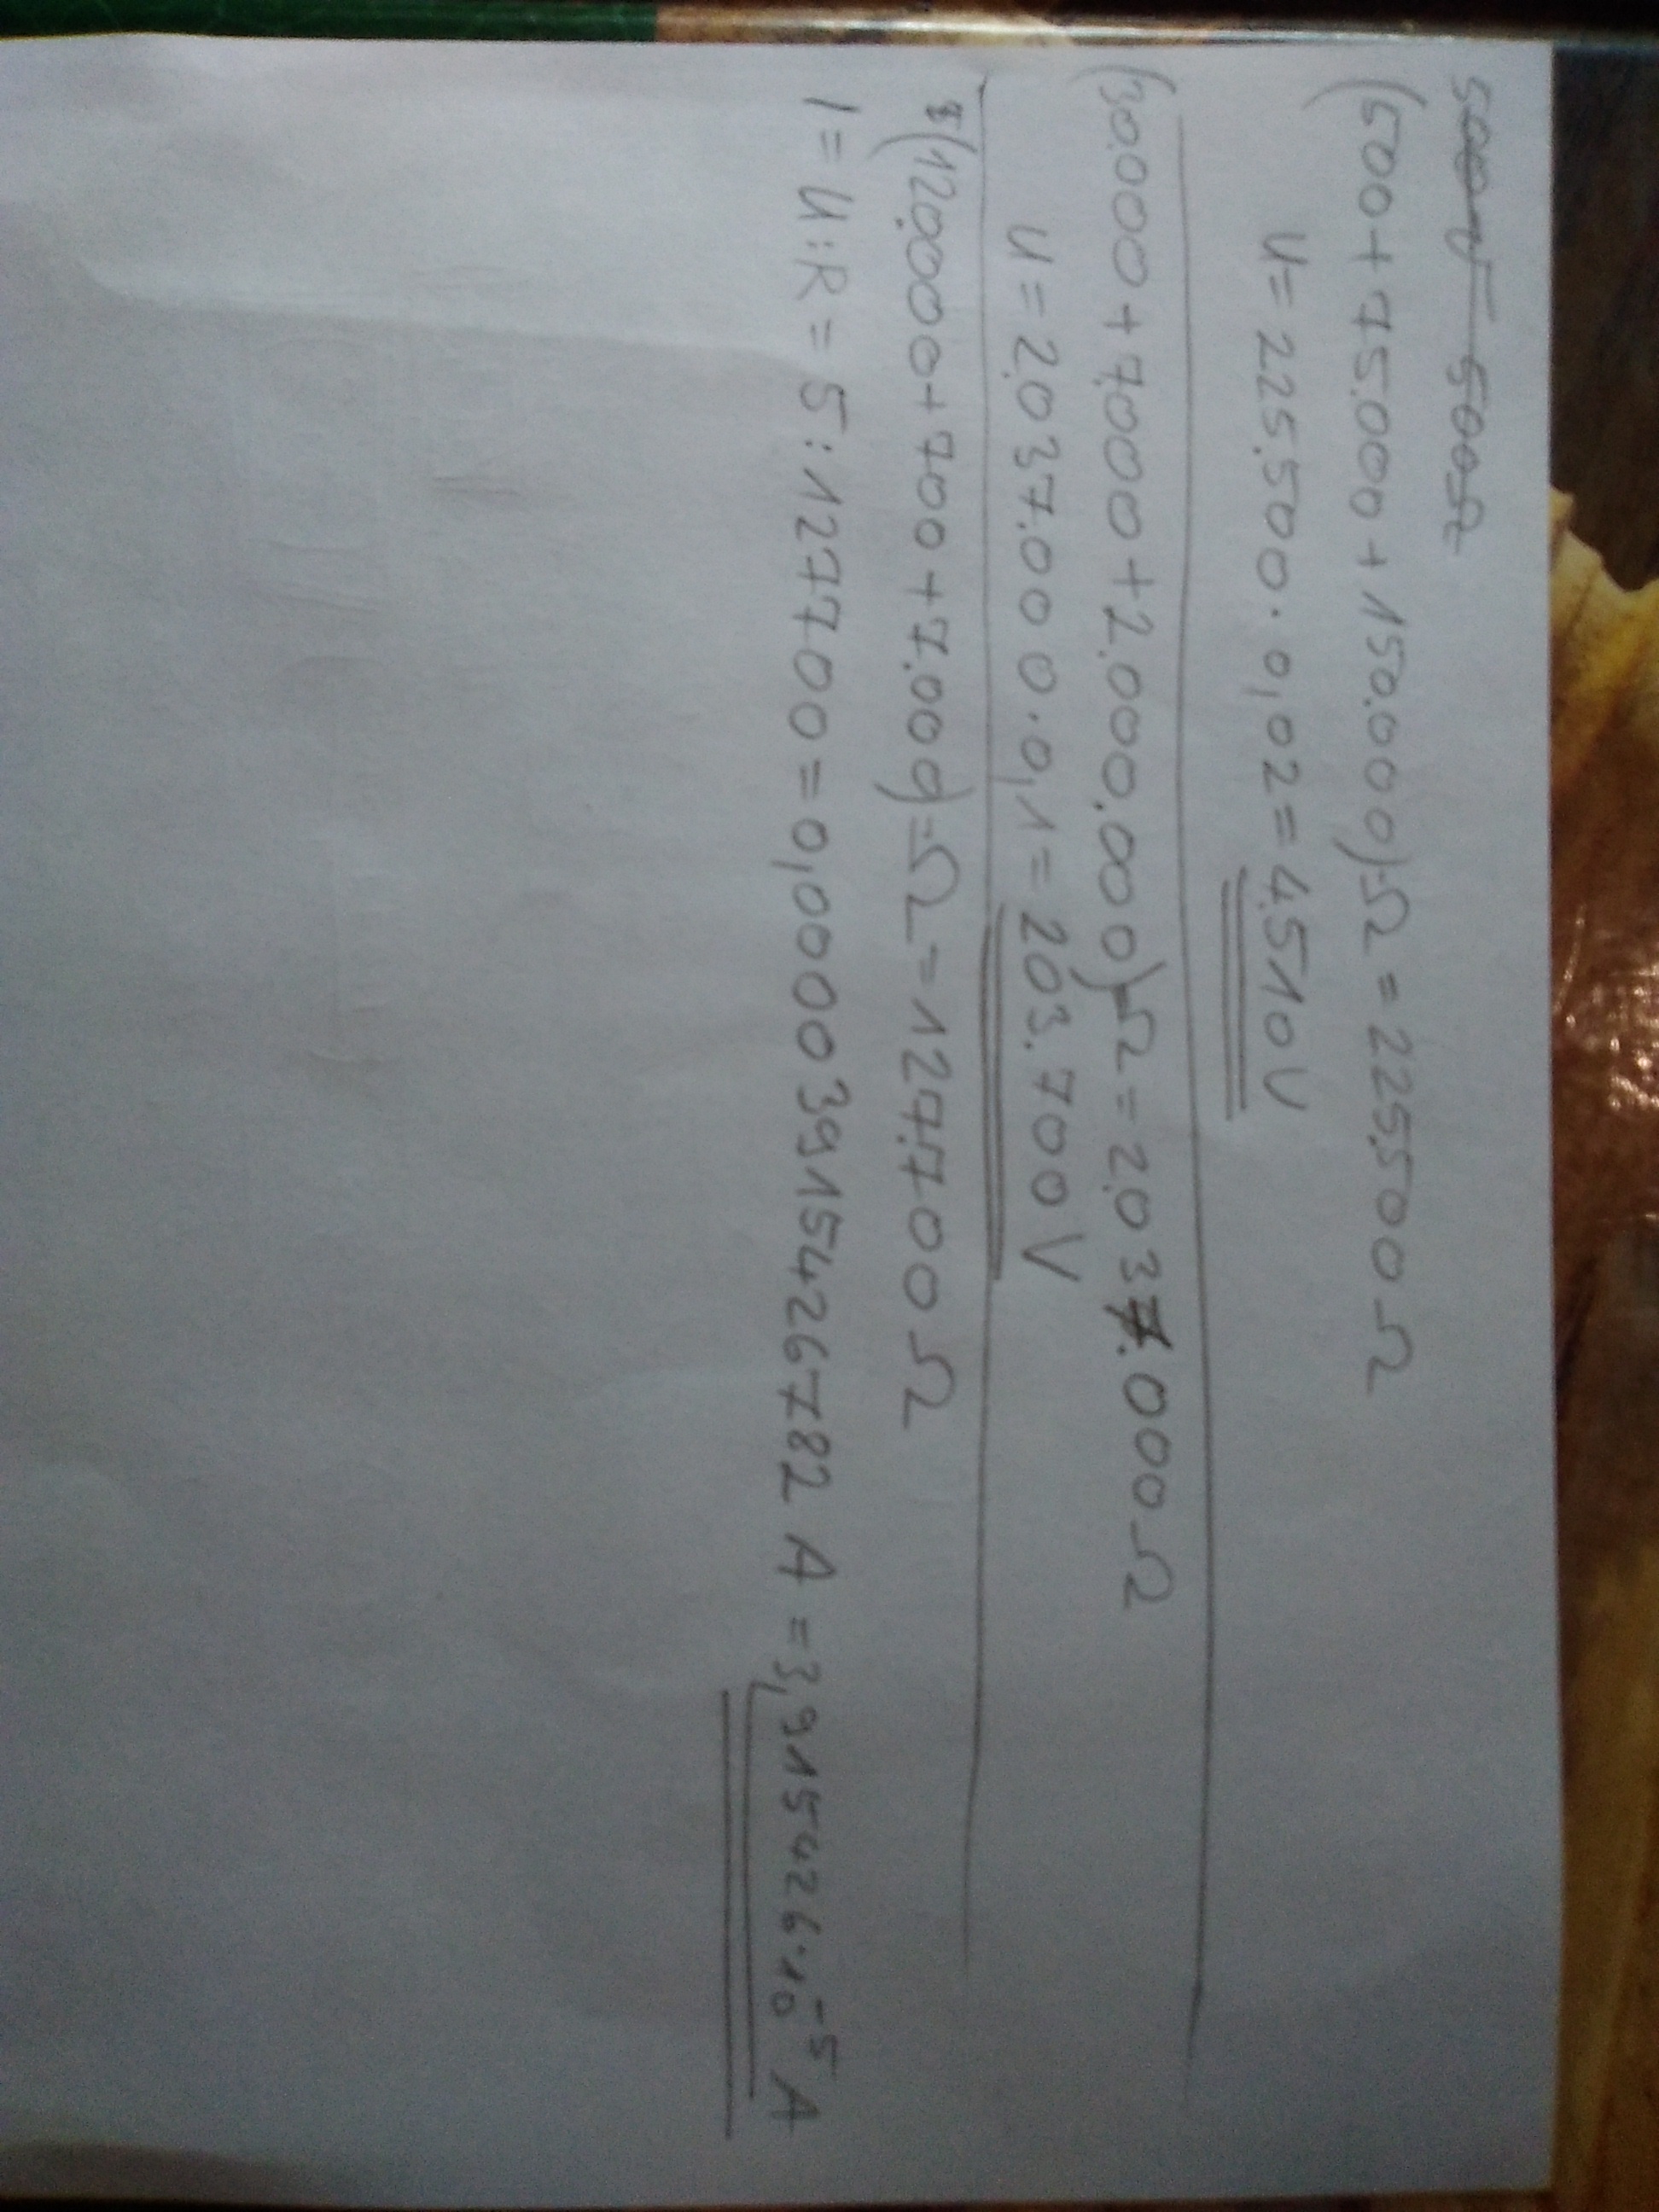 500 V = 500Ω
(500+75.000+150.000)Ω = 225.500Ω
U = 225.500·0,02 = 4.510 V
(30.000+7.000+2.000.000)Ω = 2.037.000Ω
U = 2.037.000·0,1 = 203.700 V
(120.000+700+7.000)Ω = 127.700Ω
I = U:R = 5:127700 = 0,00003915426782 A = 3,915426·10⁻⁵ A